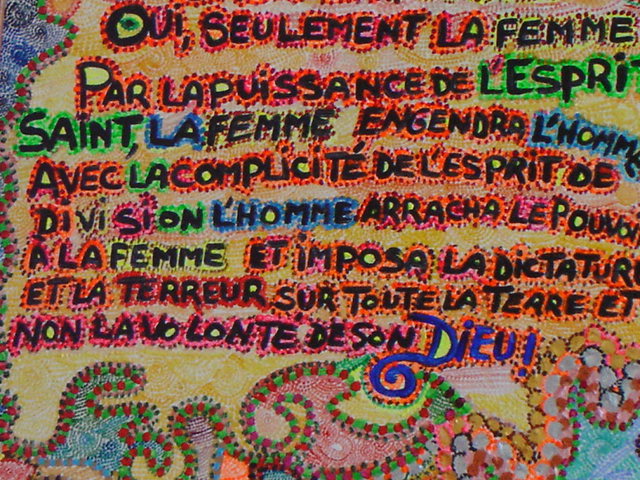 OUI, SEULEMENT LA FEMME
PAR LA PUISSANCE DE L'ESPRIT
SAINT, LA FEMME ENGENDRA L'HOMME
AVEC LA COMPLICITÉ DE L'ESPRIT DE
DIVISION L'HOMME ARRACHA LE POUVO
À LA FEMME ET IMPOSA LA DICTATUR
ET LA TERREUR SUR TOUTE LA TERRE ET
NON LA VOLONTÉ DE SON DIEU!